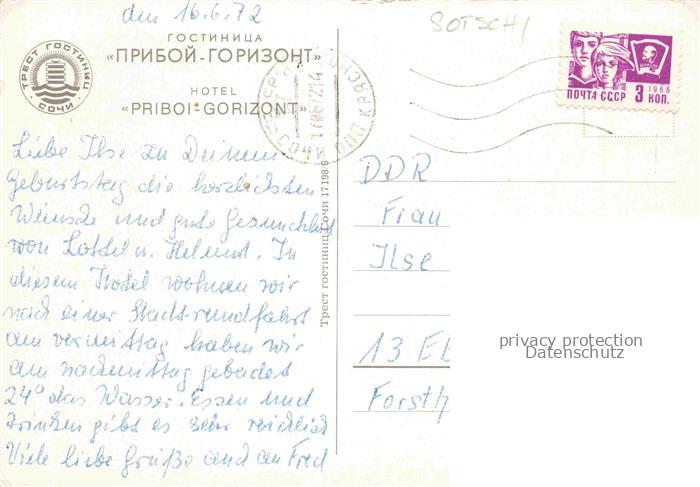 den 16.6.72
SOTSCHI
ГОСТИНИЦА
«ПРИБОЙ-ГОРИЗОНТ»
HOTEL
«PRIBOI-GORIZONT»
ТРЕСТ ГОСТИНИЦ
СОЧИ
ПОЧТА СССР 3 КОП.
1966
СОЧИ
Liebe Ilse zu Deinem
Geburtstag die herzlichsten
Wünsche und gute Gesundheit
von Lottel u. Helmut. In
diesem Hotel wohnen wir
nach einer Stadtrundfahrt
am vermittag haben wir
am nachmittag gebadet
24° das Wasser. Essen und
Trinken gibt es sehr reichlich
Viele liebe Grüße and an Fred
Трест гостиниц Сочи 17198/6
DDR
Frau
Ilse
13 Eb
Forsth
privacy protection
Datenschutz